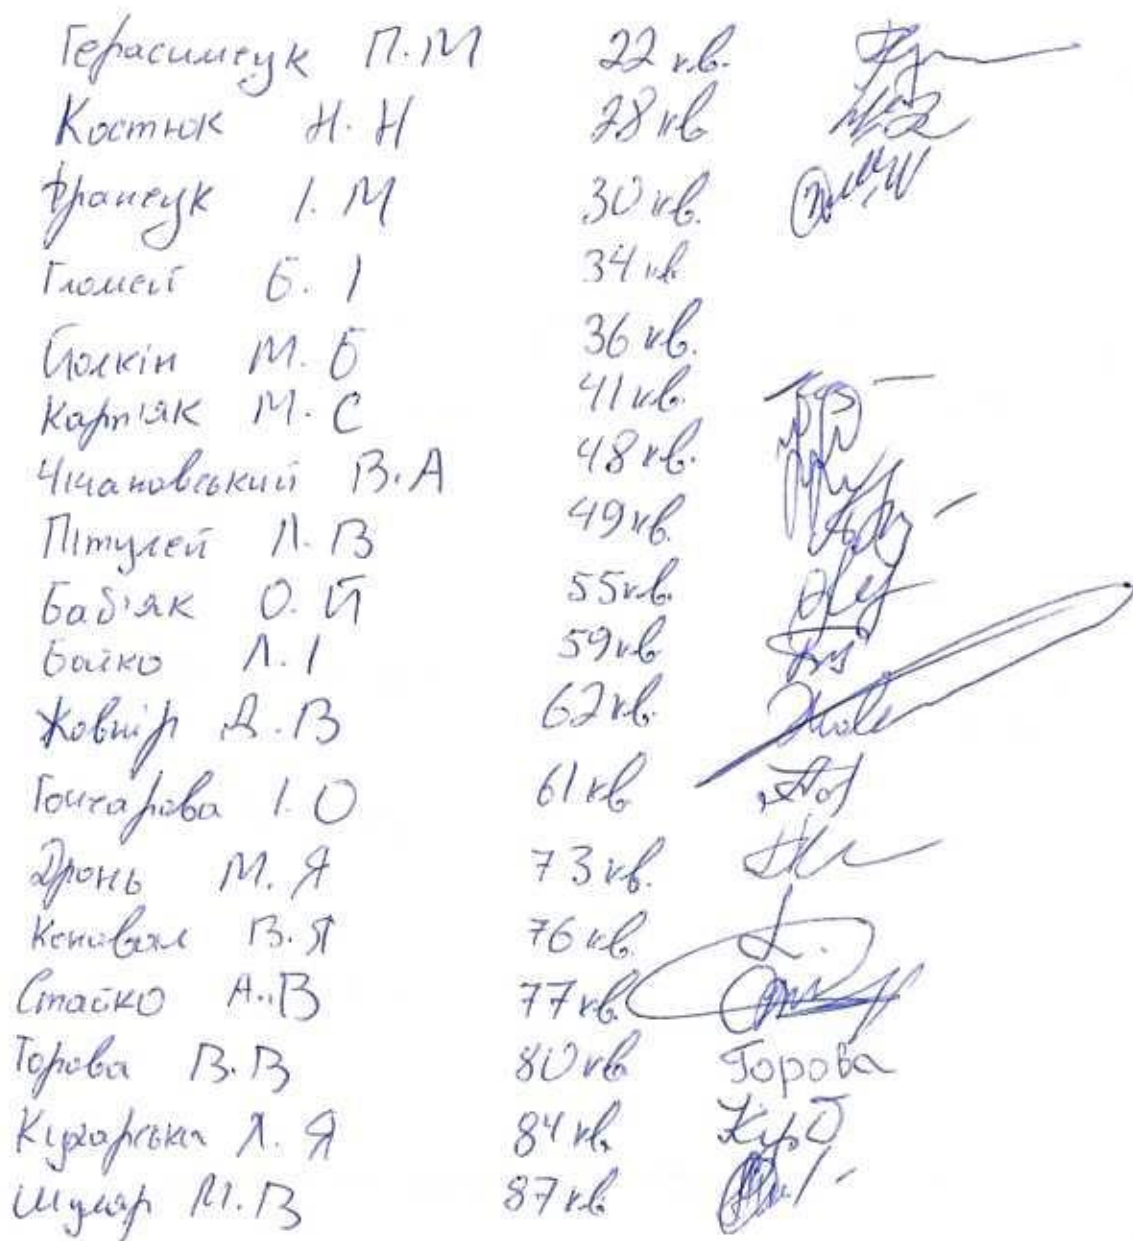 Герасимчук П.М 22 кв.
Костюк Н.Н 28 кв
Гранчук І.М 30 кв.
Гломей Б.І 34 кв
Йолкін М.Б 36 кв.
Карп'як М.С 41 кв.
Чічановський В.А 48 кв.
Пітулей Л.В 49 кв.
Баб'як О.Й 55 кв.
Бойко Л.І 59 кв
Жовнір Д.В 62 кв.
Гончарова І.О 61 кв
Дронь М.Я 73 кв.
Коновал В.Я 76 кв.
Стайко А.В 77 кв.
Горова В.В 80 кв Горова
Кухарська Л.Я 84 кв.
Шуляр М.В 87 кв.